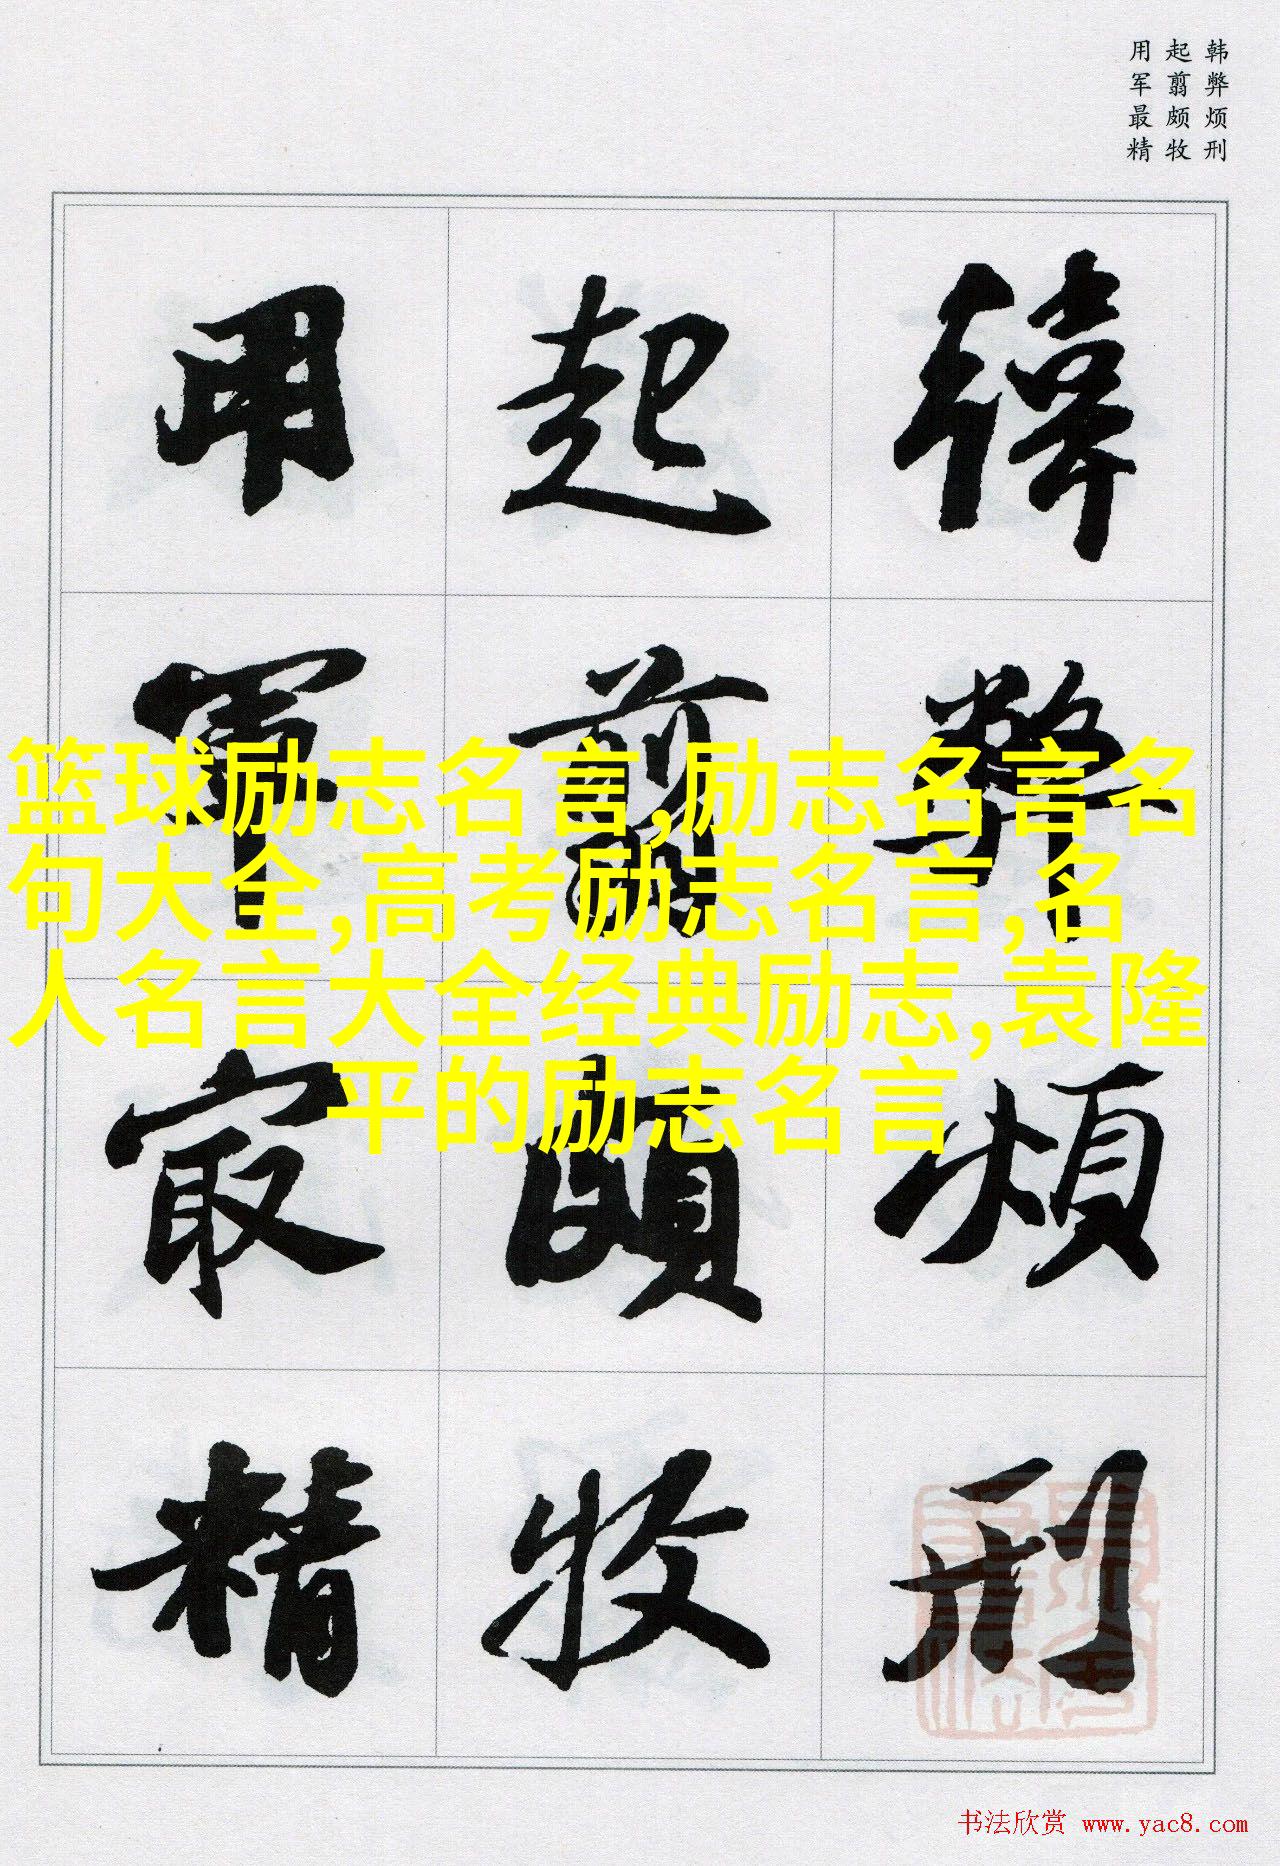 韩弊烦刑
起翦颇牧
用军最精
韓弊煩刑
起翦頗牧
用軍最精
篮球励志名言,励志名言名
句大全,高考励志名言,名
人名言大全经典励志,袁隆
平的励志名言
书法欣赏 www.yac8.com